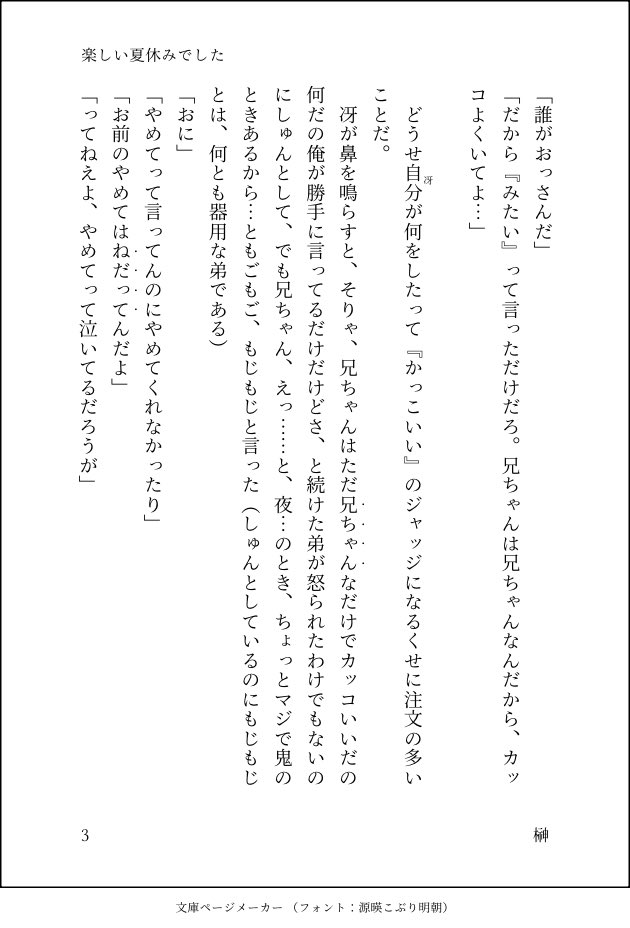 楽しい夏休みでした
「誰がおっさんだ」
「だから『みたい』って言っただけだろ。兄ちゃんは兄ちゃんなんだから、カッ
コよくいてよ…」
どうせ自分が何をしたって『かっこいい』のジャッジになるくせに注文の多い
冴
ことだ。
冴が鼻を鳴らすと、そりゃ、兄ちゃんはただ兄ちゃんなだけでカッコいいだの
何だの俺が勝手に言ってるだけだけどさ、と続けた弟が怒られたわけでもないの
にしゅんとして、でも兄ちゃん、えっ……と、夜…のとき、ちょっとマジで鬼の
ときあるから…ともごもご、もじもじと言った(しゅんとしているのにもじもじ
とは、何とも器用な弟である)
「おに」
「やめてって言ってんのにやめてくれなかったり」
「お前のやめてはねだってんだよ」
「ってねえよ、やめてって泣いてるだろうが」
榊
3
文庫ページメーカー（フォント：源暎こぶり明朝）